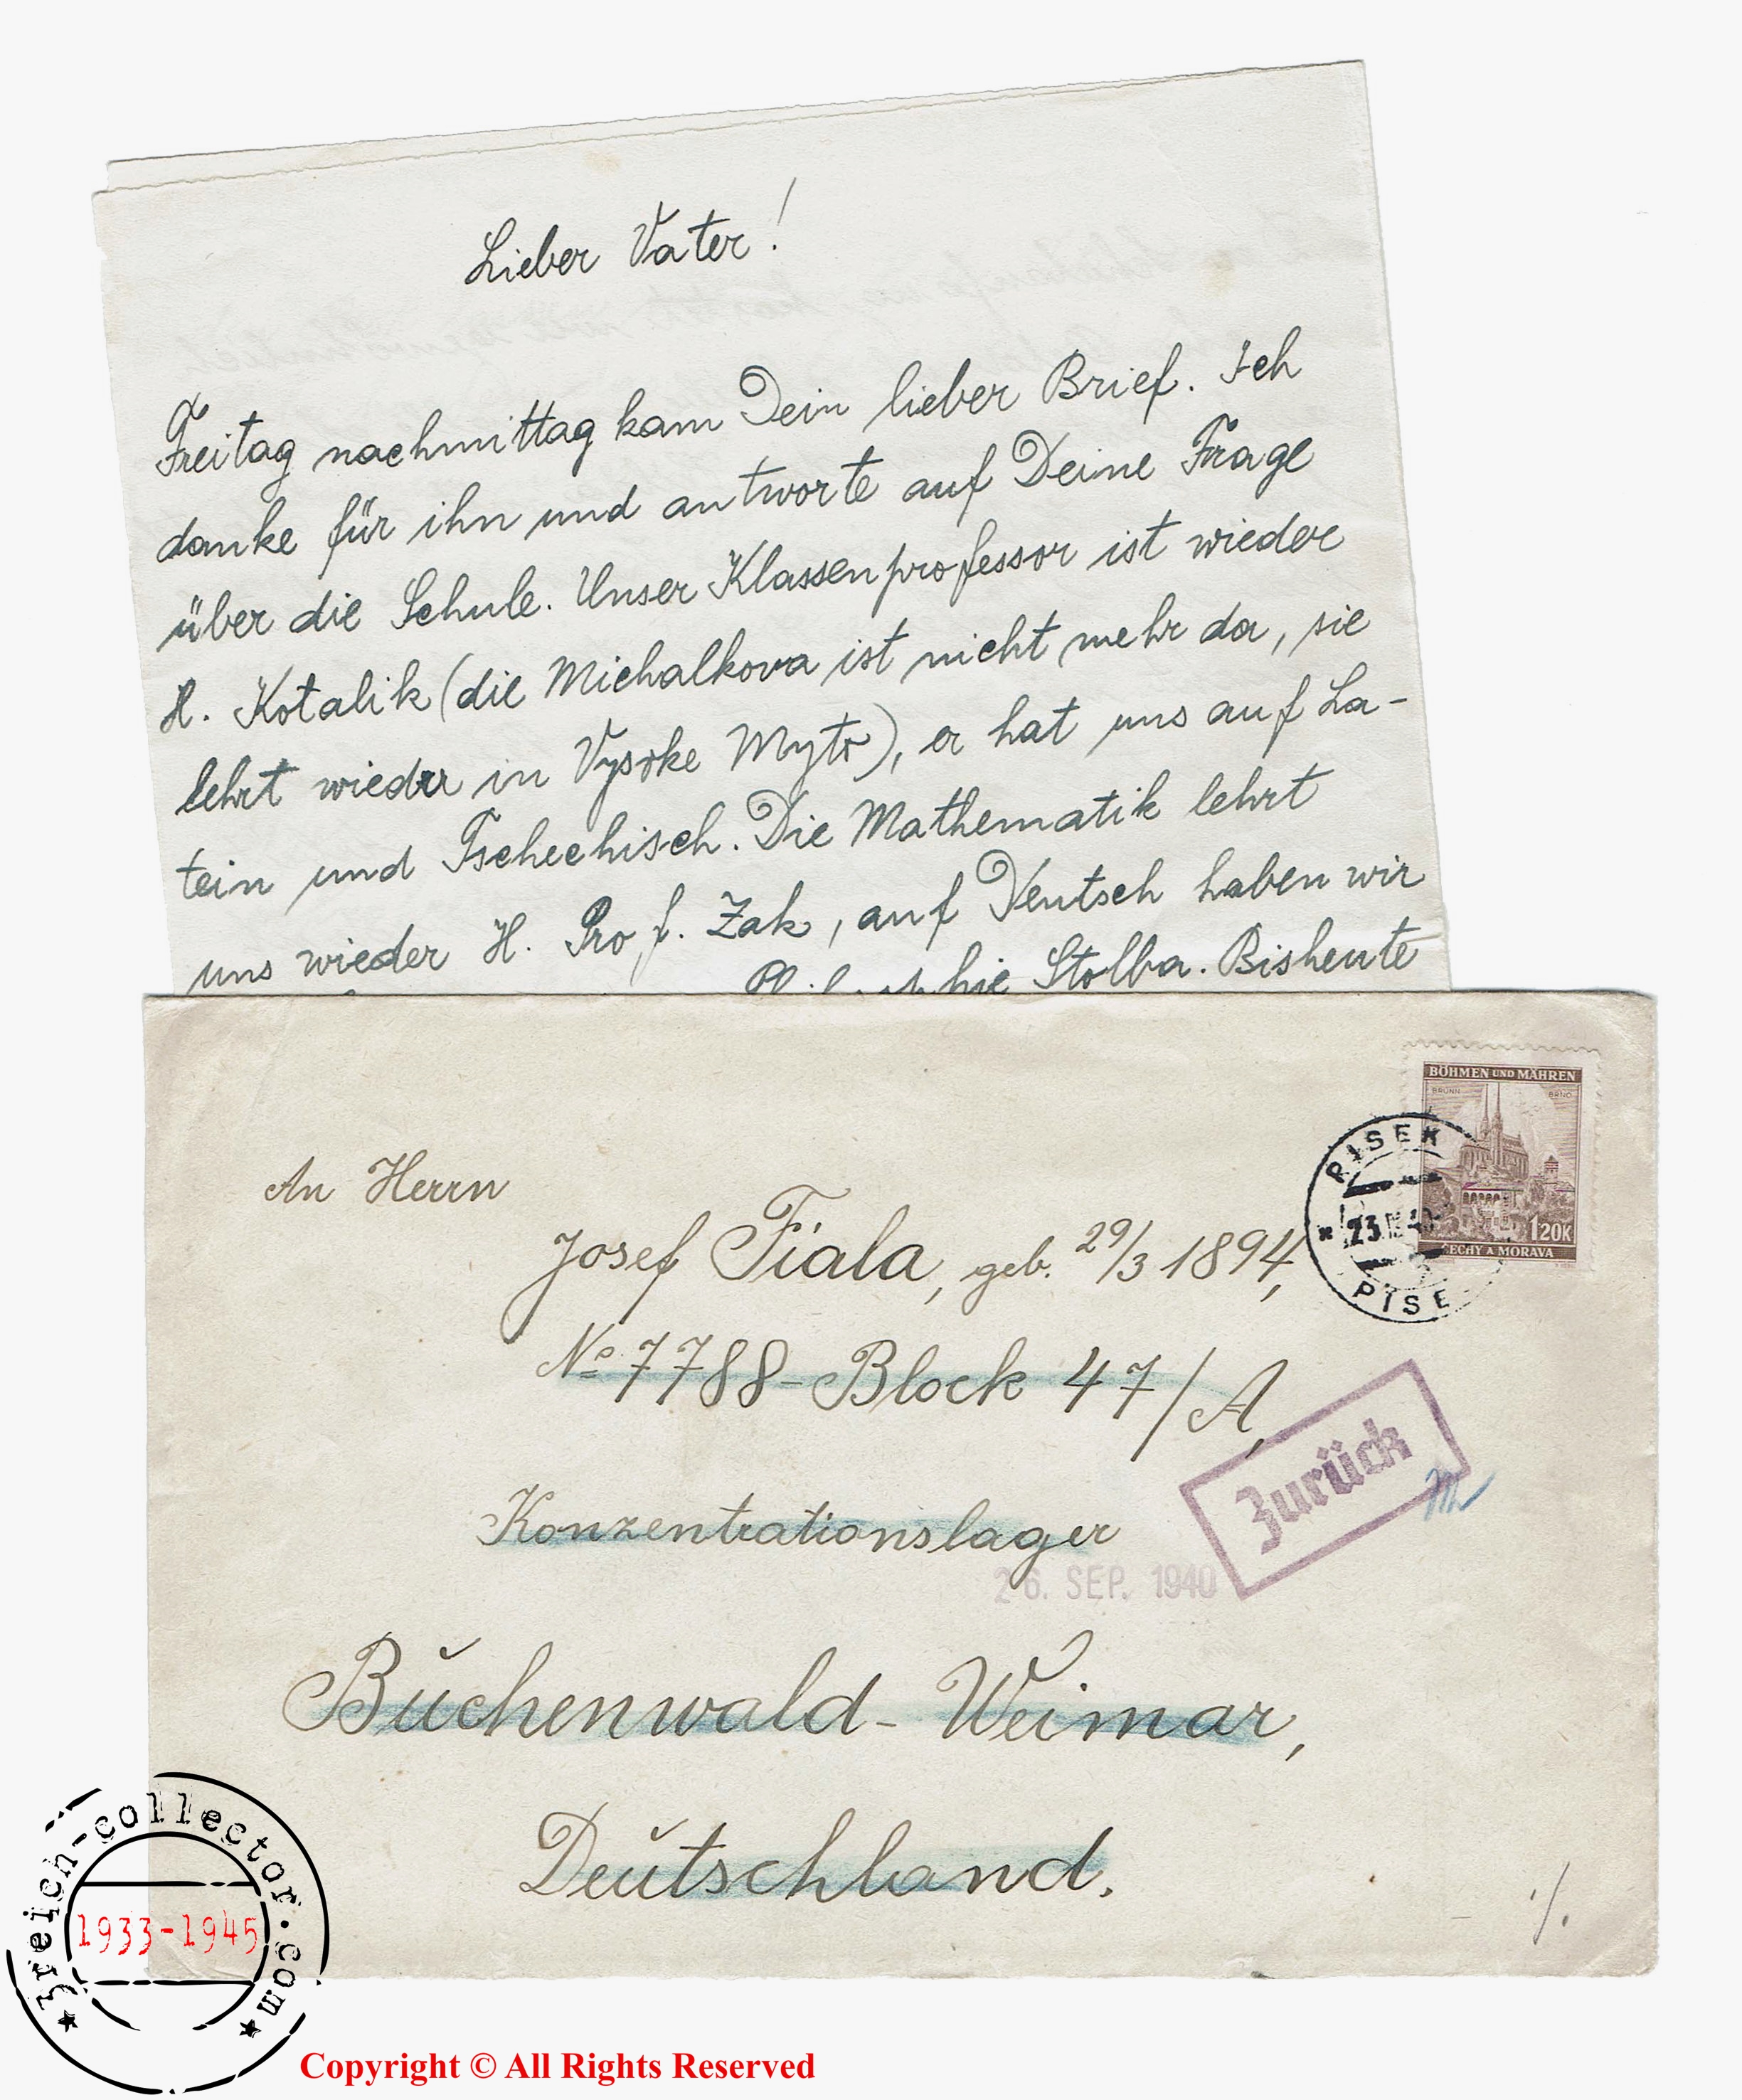 Lieber Vater!
Freitag nachmittag kam Dein lieber Brief. Ich
danke für ihn und antworte auf Deine Frage
über die Schule. Unser Klassenprofessor ist wieder
H. Kotalik (die Michalkova ist nicht mehr da, sie
lehrt wieder in Vysoke Myto), er hat uns auf La-
tein und Tschechisch. Die Mathematik lehrt
uns wieder H. Prof. Zak, auf Deutsch haben wir
Stolba. Bisheute
BÖHMEN UND MÄHREN
BRÜNN BRNO
1.20K
ČECHY A MORAVA
PISEK
23.IX.40
PÍSE
An Herrn
Josef Fiala, geb. 29/3 1894,
No 7788-Block 47/A,
Zurück
Konzentrationslager
26. SEP. 1940
Buchenwald-Weimar,
Deutschland.
./.
3reich-collector.com
1933-1945
Copyright © All Rights Reserved